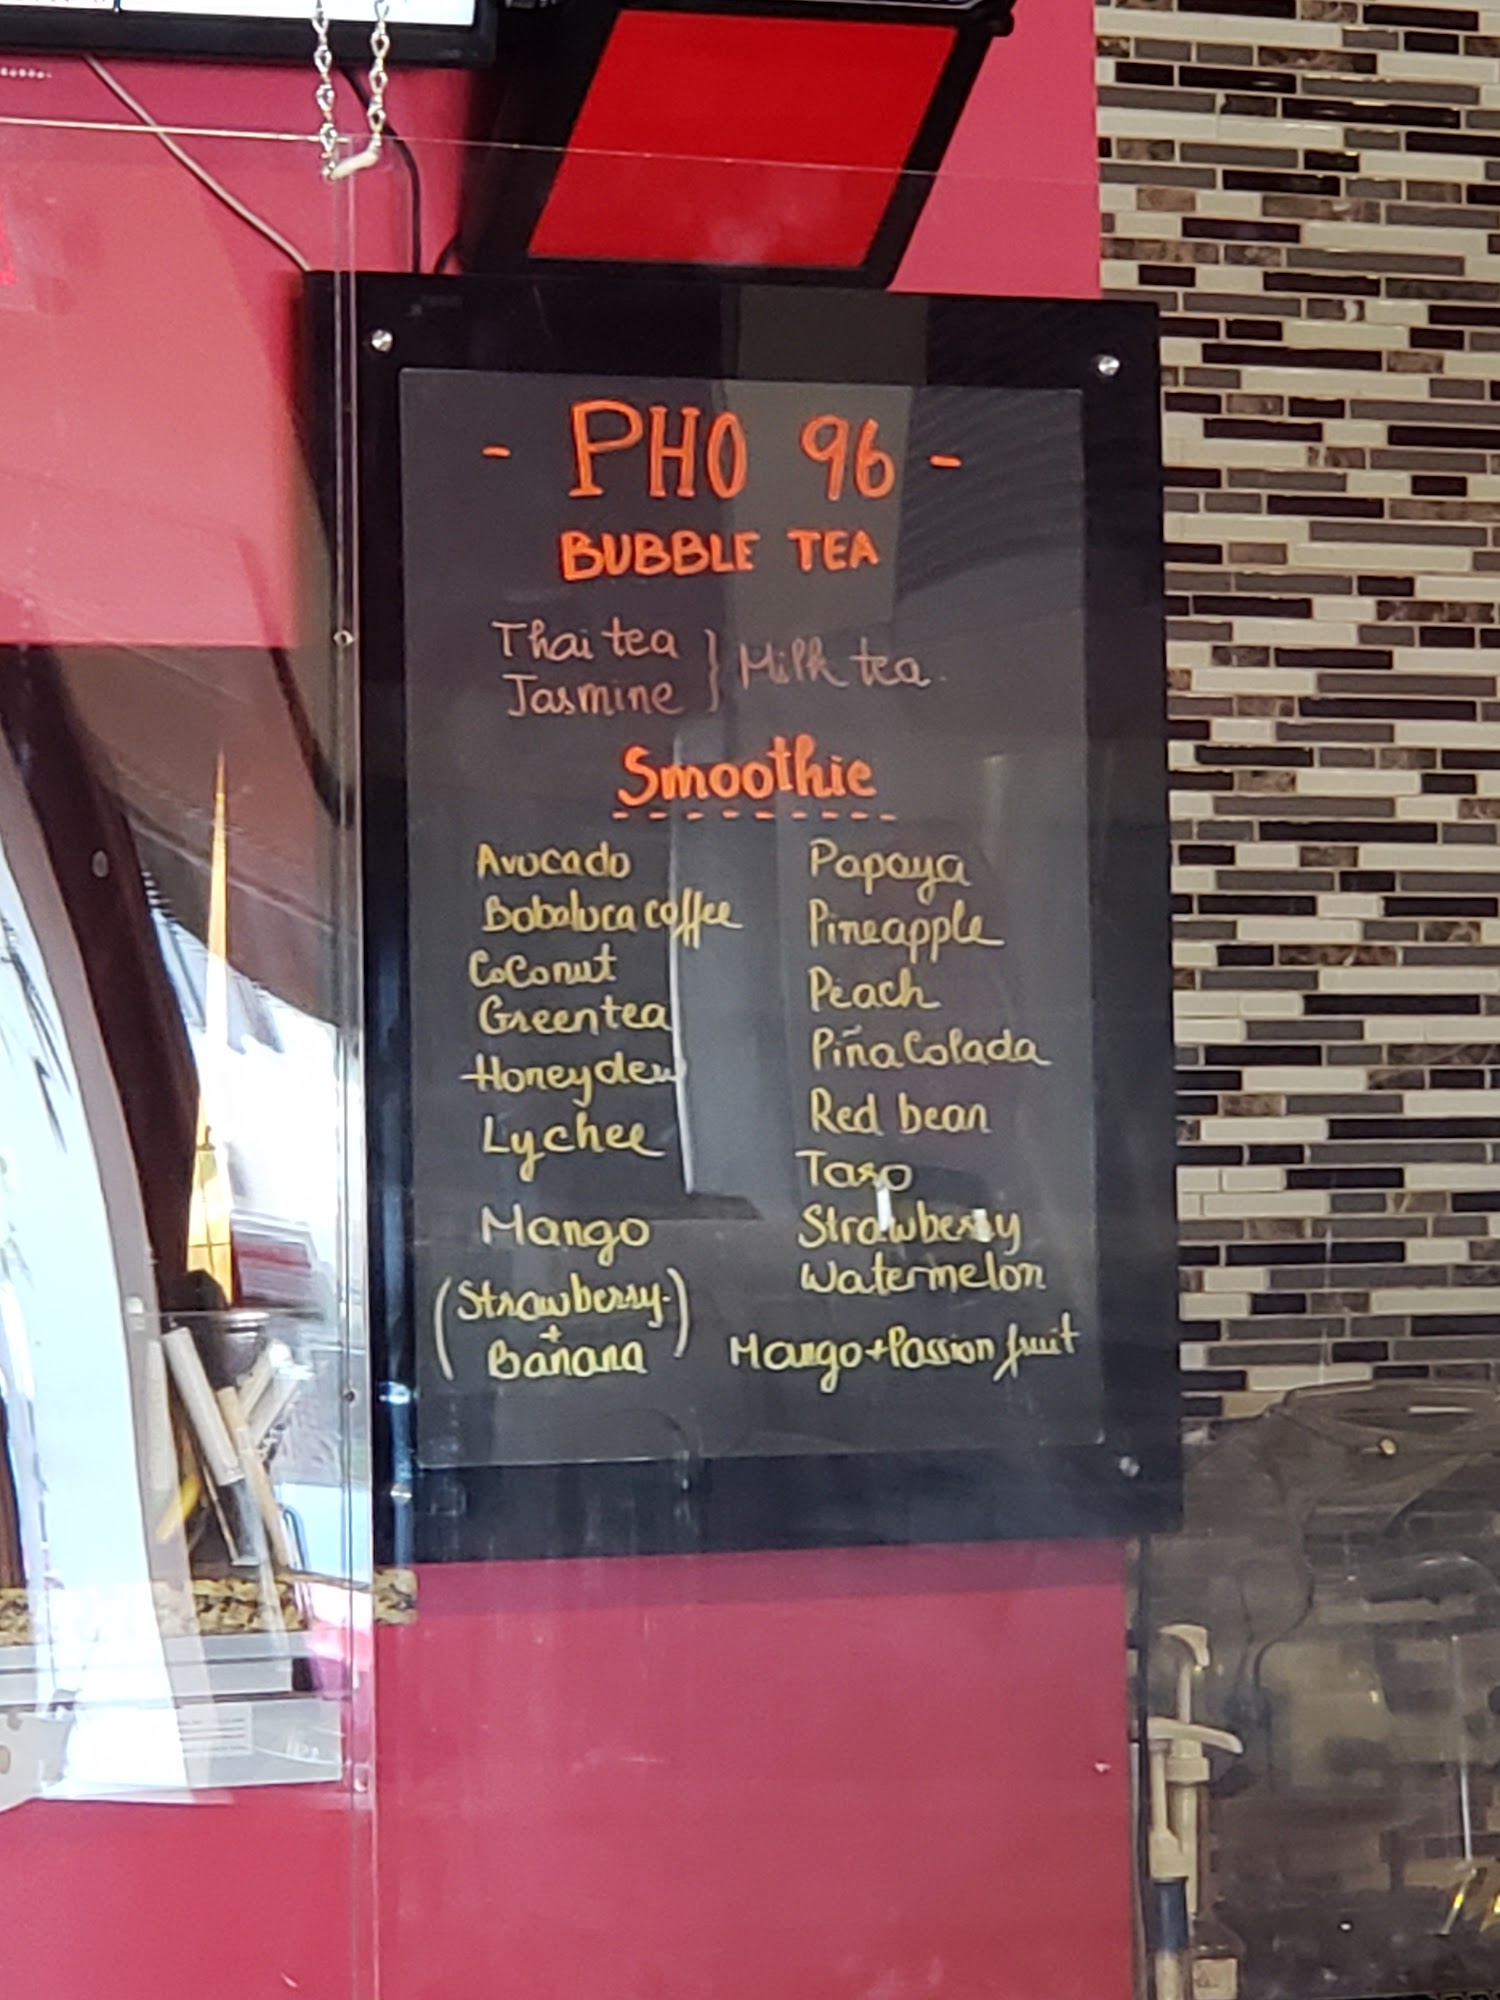 - PHO 96 -
BUBBLE TEA
Thai tea
Jasmine } Milk tea.
Smoothie
Avocado
Bobaluca coffee
Coconut
Green tea
Honeydew
Lychee
Mango
(Strawberry
+
Banana)
Papaya
Pineapple
Peach
Piña Colada
Red bean
Taro
Strawberry
Watermelon
Mango + Passion fruit